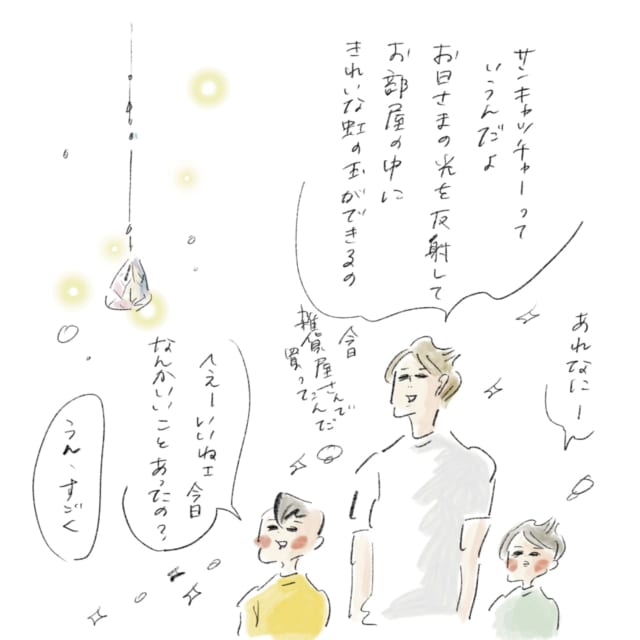 あれなにー
サンキャッチャーって
いうんだよ
お日さまの光を反射して
お部屋の中に
きれいな虹の玉ができるの
今日
雑貨屋さんで
買ってたんだ
へえーいいねェ 今日
なんかいいことあったの?
うん、すごく